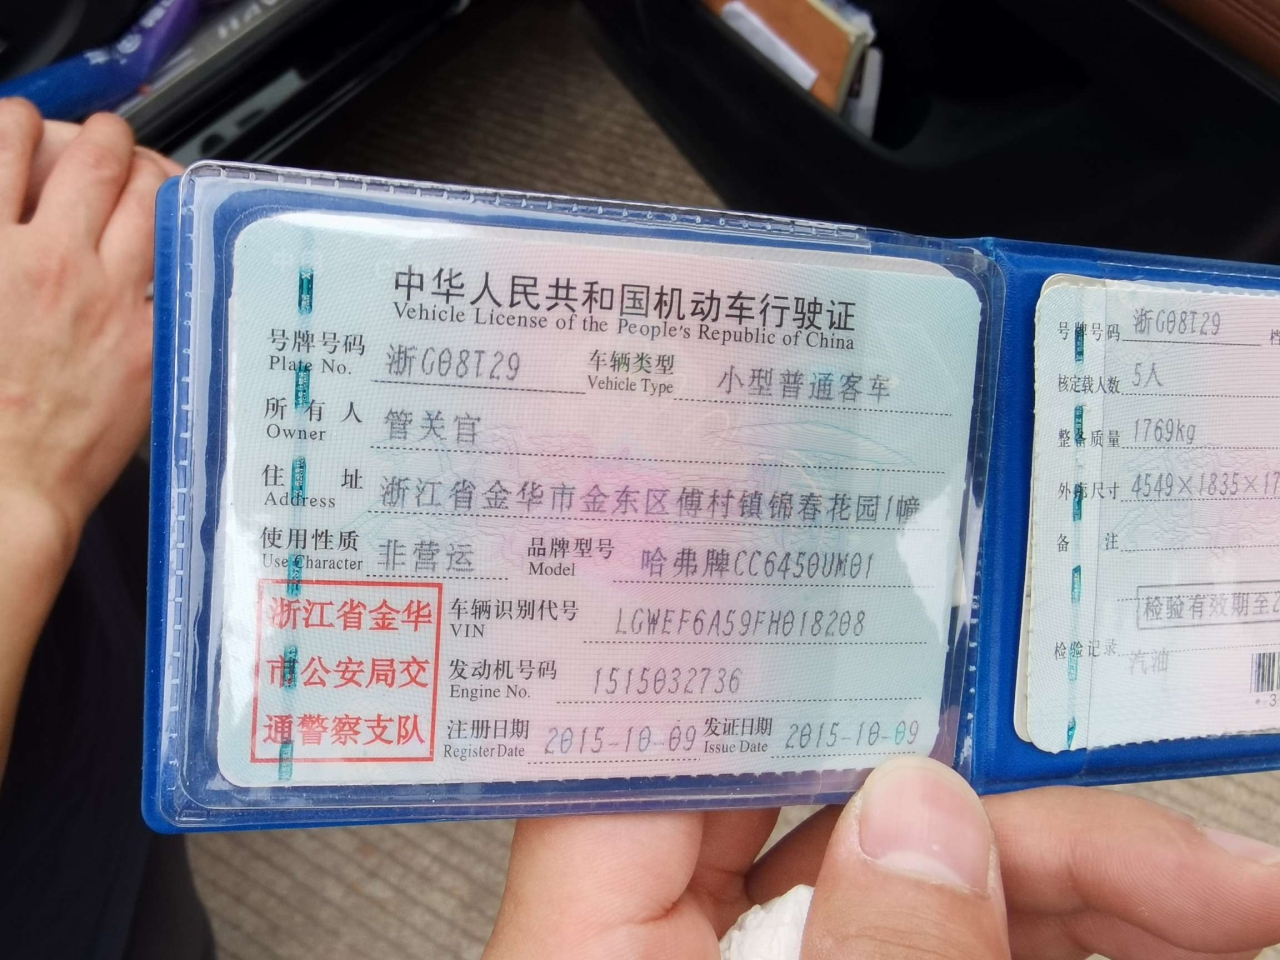 中华人民共和国机动车行驶证
Vehicle License of the People's Republic of China
号牌号码 浙G08T29 车辆类型 小型普通客车
Plate No. Vehicle Type
所有人 管关官
Owner
住址 浙江省金华市金东区傅村镇锦春花园1幢
Address
使用性质 非营运 品牌型号 哈弗牌CC6450UM01
Use Character Model
浙江省金华
市公安局交
通警察支队
车辆识别代号 LGWEF6A59FH018208
VIN
发动机号码 1515032736
Engine No.
注册日期 2015-10-09 发证日期 2015-10-09
Register Date Issue Date
号牌号码 浙G08T29
核定载人数 5人
整备质量 1769kg
外廓尺寸 4549×1835×17
备注
检验有效期至
检验记录
汽油